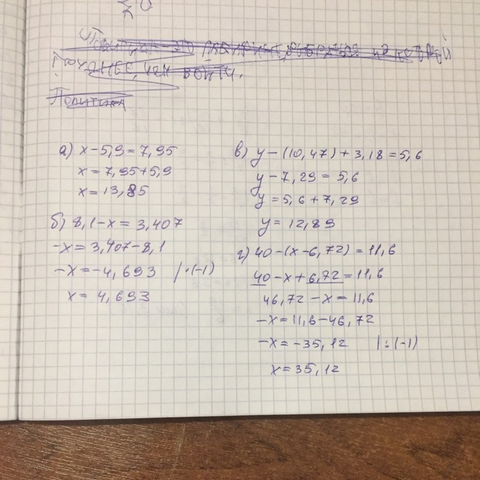 а) x-5,9=7,95
x=7,95+5,9
x=13,85
б) 8,1-x=3,407
-x=3,407-8,1
-x=-4,693 |·(-1)
x=4,693
в) y-(10,47)+3,18=5,6
y-7,29=5,6
y=5,6+7,29
y=12,89
г) 40-(x-6,72)=11,6
40-x+6,72=11,6
46,72-x=11,6
-x=11,6-46,72
-x=-35,12 |:(-1)
x=35,12